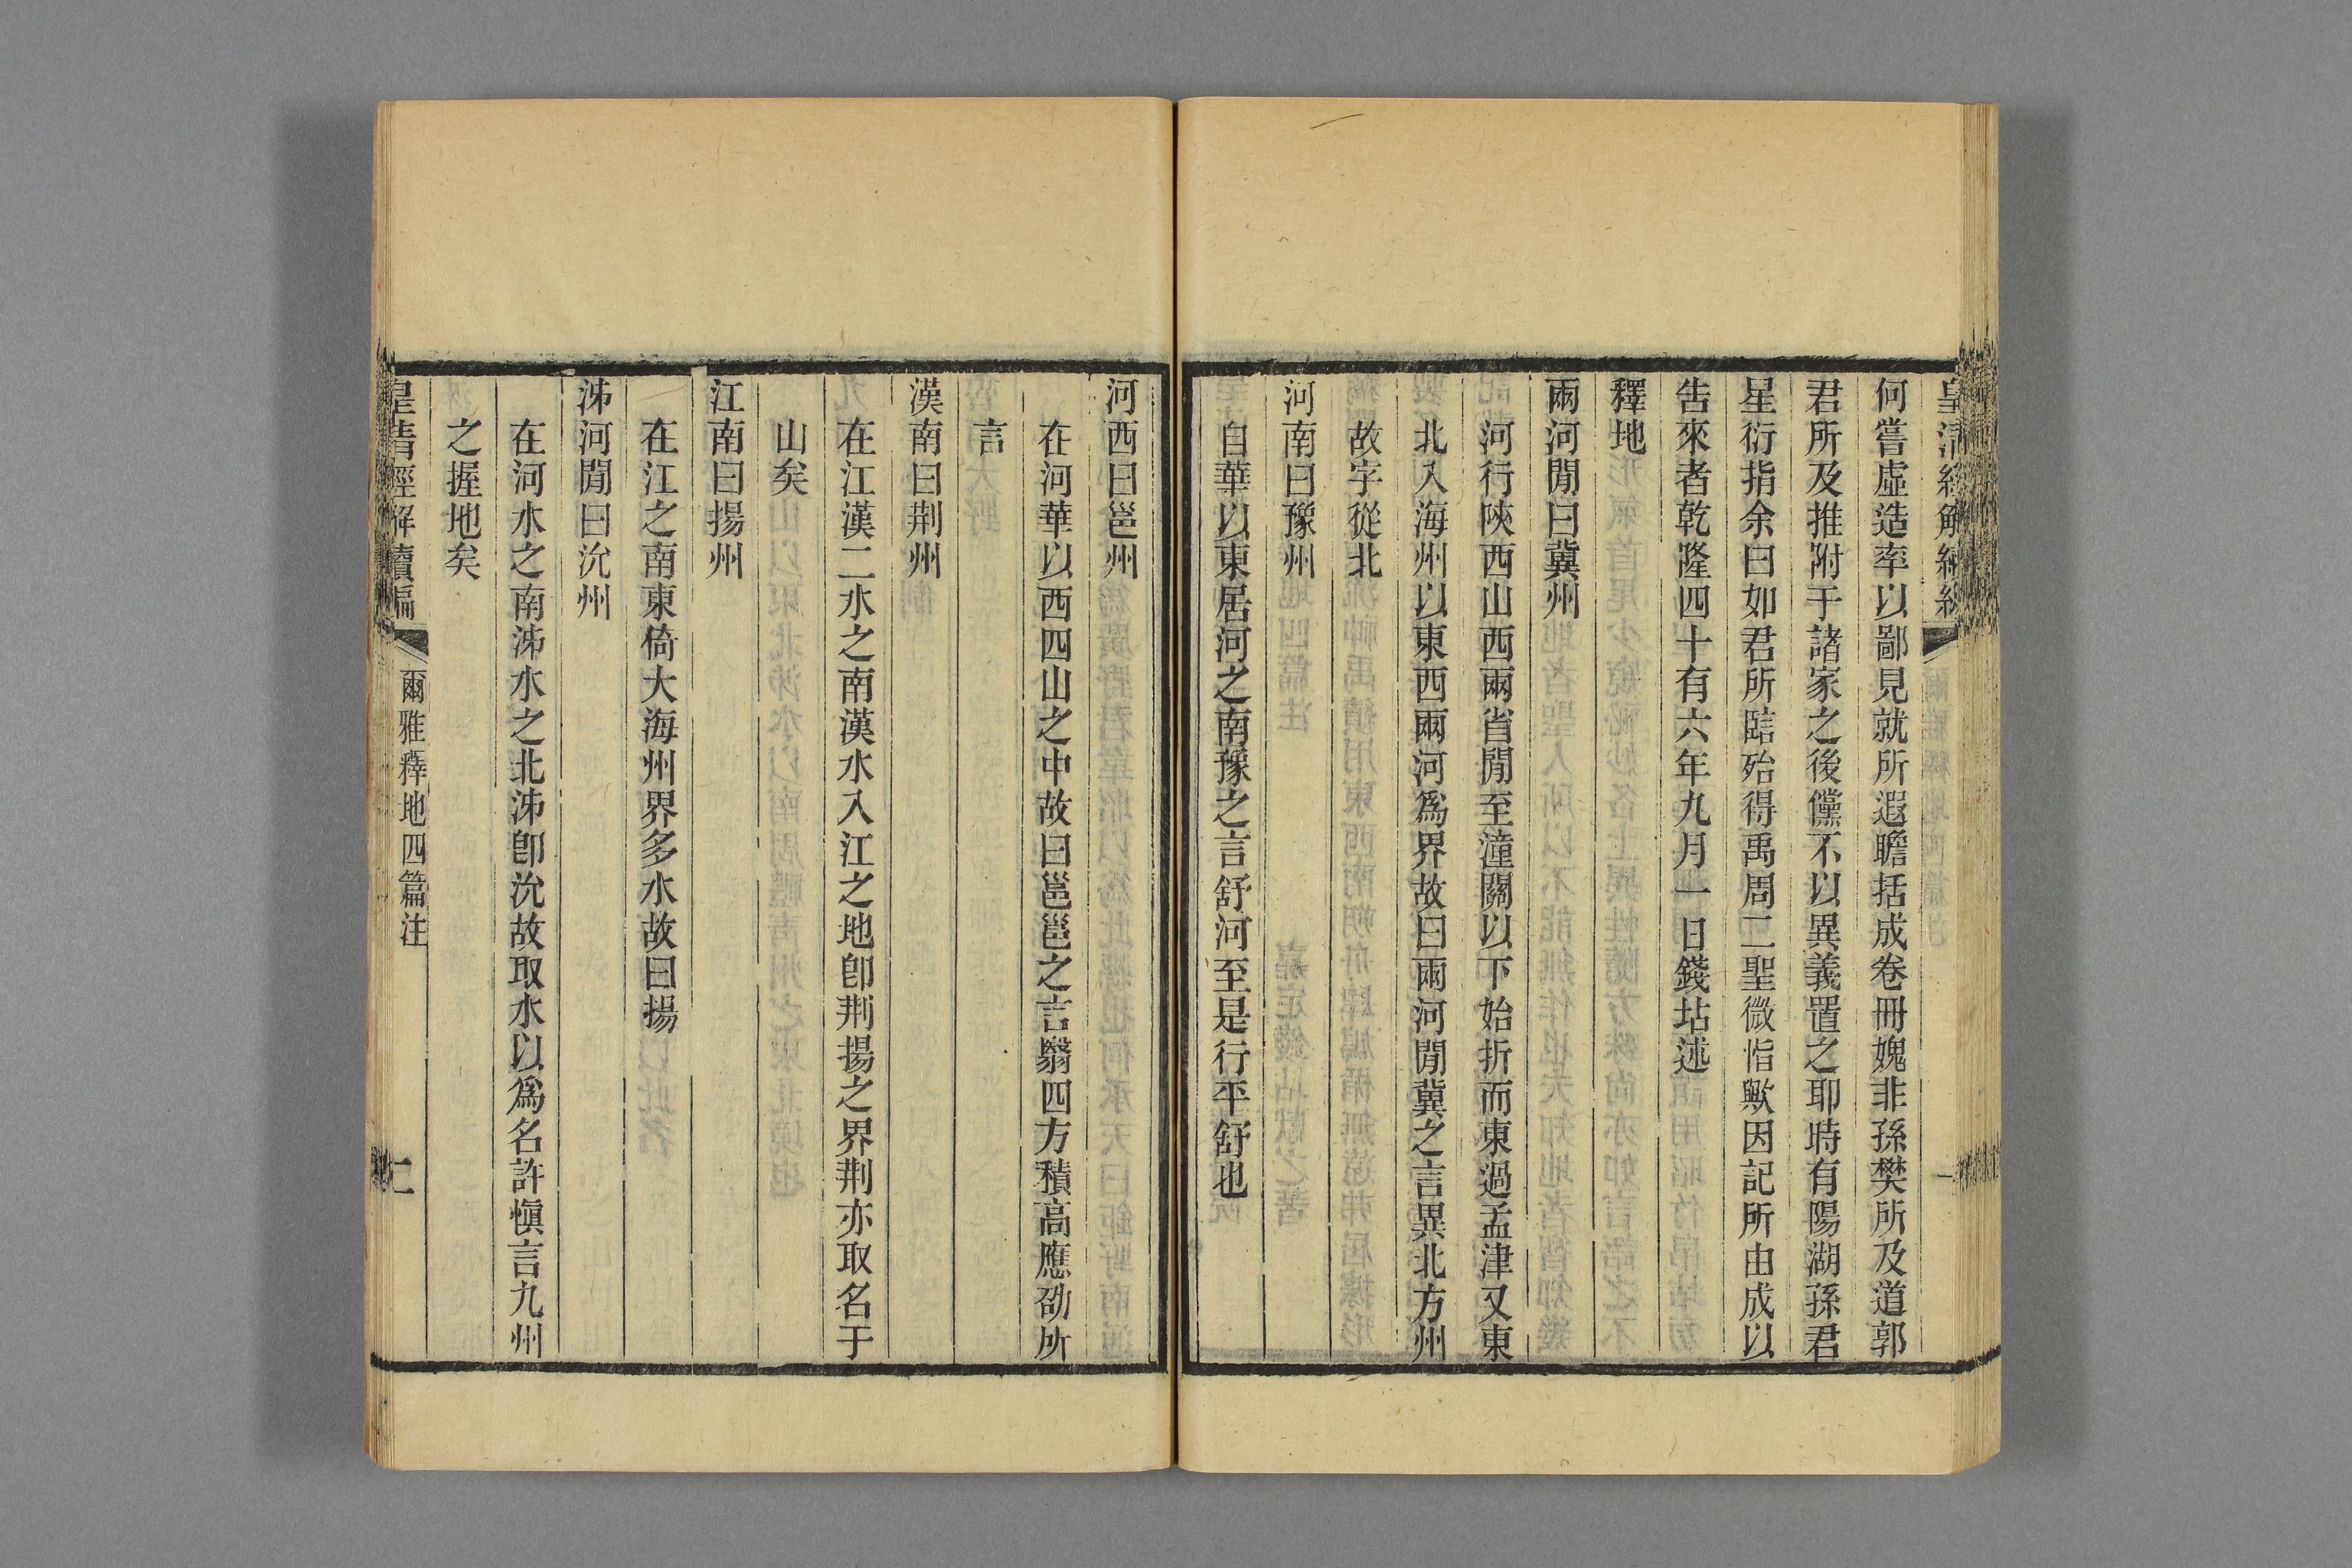 何嘗虛造率以鄙見就所遐瞻括成卷冊媿非孫樊所及道郭
君所及推附于諸家之後儻不以異義置之耶時有陽湖孫君
星衍指余曰如君所䛿殆得禹周二聖微恉歟因記所由成以
告來者乾隆四十有六年九月一日錢坫述
釋地
兩河閒曰冀州
河行陝西山西兩省閒至潼關以下始折而東過孟津又東
北入海州以東西兩河爲界故曰兩河閒冀之言異北方州
故字從北
河南曰豫州
自華以東居河之南豫之言舒河至是行平舒也
河西曰邕州
在河華以西四山之中故曰邕邕之言翳四方積高應劭所
言
漢南曰荆州
在江漢二水之南漢水入江之地卽荆揚之界荆亦取名于
山矣
江南曰揚州
在江之南東倚大海州界多水故曰揚
泲河閒曰沇州
在河水之南泲水之北泲卽沇故取水以爲名許愼言九州
之握地矣
皇清經解續編 爾雅釋地四篇注 二